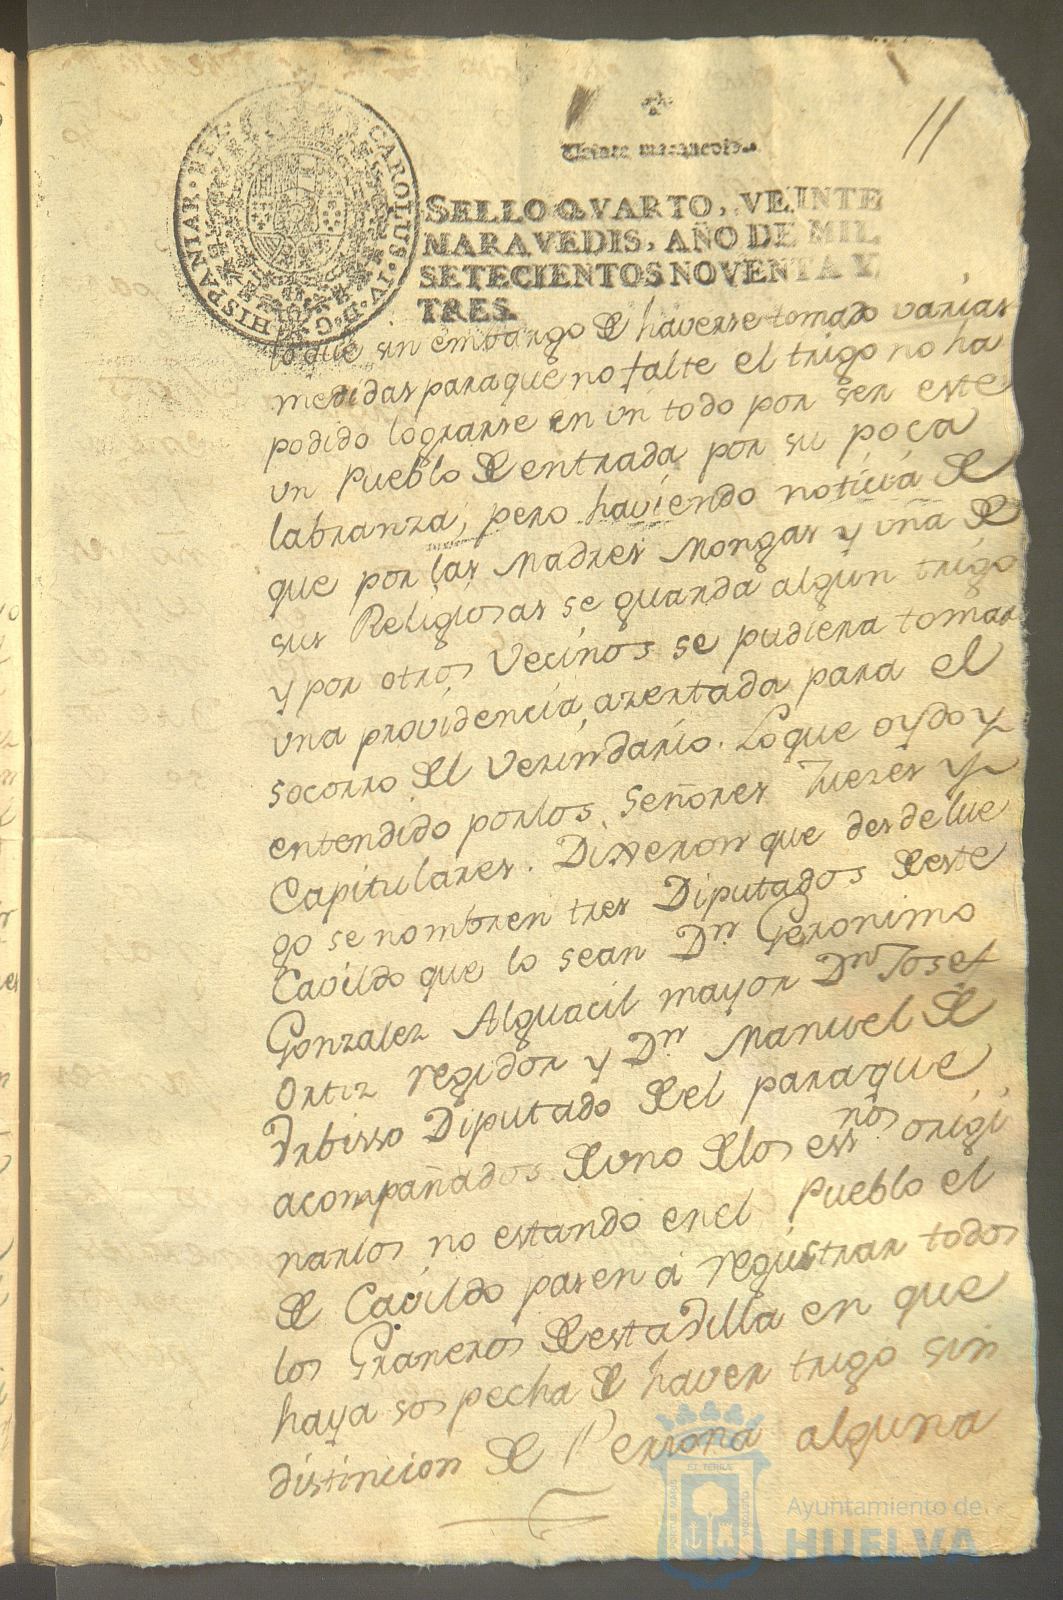 11
Veinte maravedis.
SELLO QVARTO, VEINTE
MARAVEDIS, AÑO DE MIL
SETECIENTOS NOVENTA Y
TRES.
CAROLUS·IV·D·G·HISPANIAR·REX
lo que sin embargo de haverse tomado varias
medidas para que no falte el trigo no ha
podido lograrse en un todo por ser este
un Pueblo de entrada por su poca
labranza, pero haviendo noticia de
que por las Madres Mongas y una de
sus Religiosas se guarda algun trigo
y por otros Vecinos se pudiera tomar
una providencia azertada para el
socorro del Vezindario. Lo que oydo y
entendido por los Señores Juezes y
Capitulares. Dixeron que desde lue
go se nombren tres Diputados de este
Cavildo que lo sean Dn Geronimo
Gonzalez Alguacil mayor Dn Josef
Ortiz regidor y Dn Manuel de
Diputado del para que
acompañados de uno de los essnos origi
narios no estando en el Pueblo el
de Cavildo pasen á registrar todos
los Graneros de esta dilla en que
haya sospecha de haver trigo sin
distincion de Persona alguna
Ayuntamiento de
HUELVA